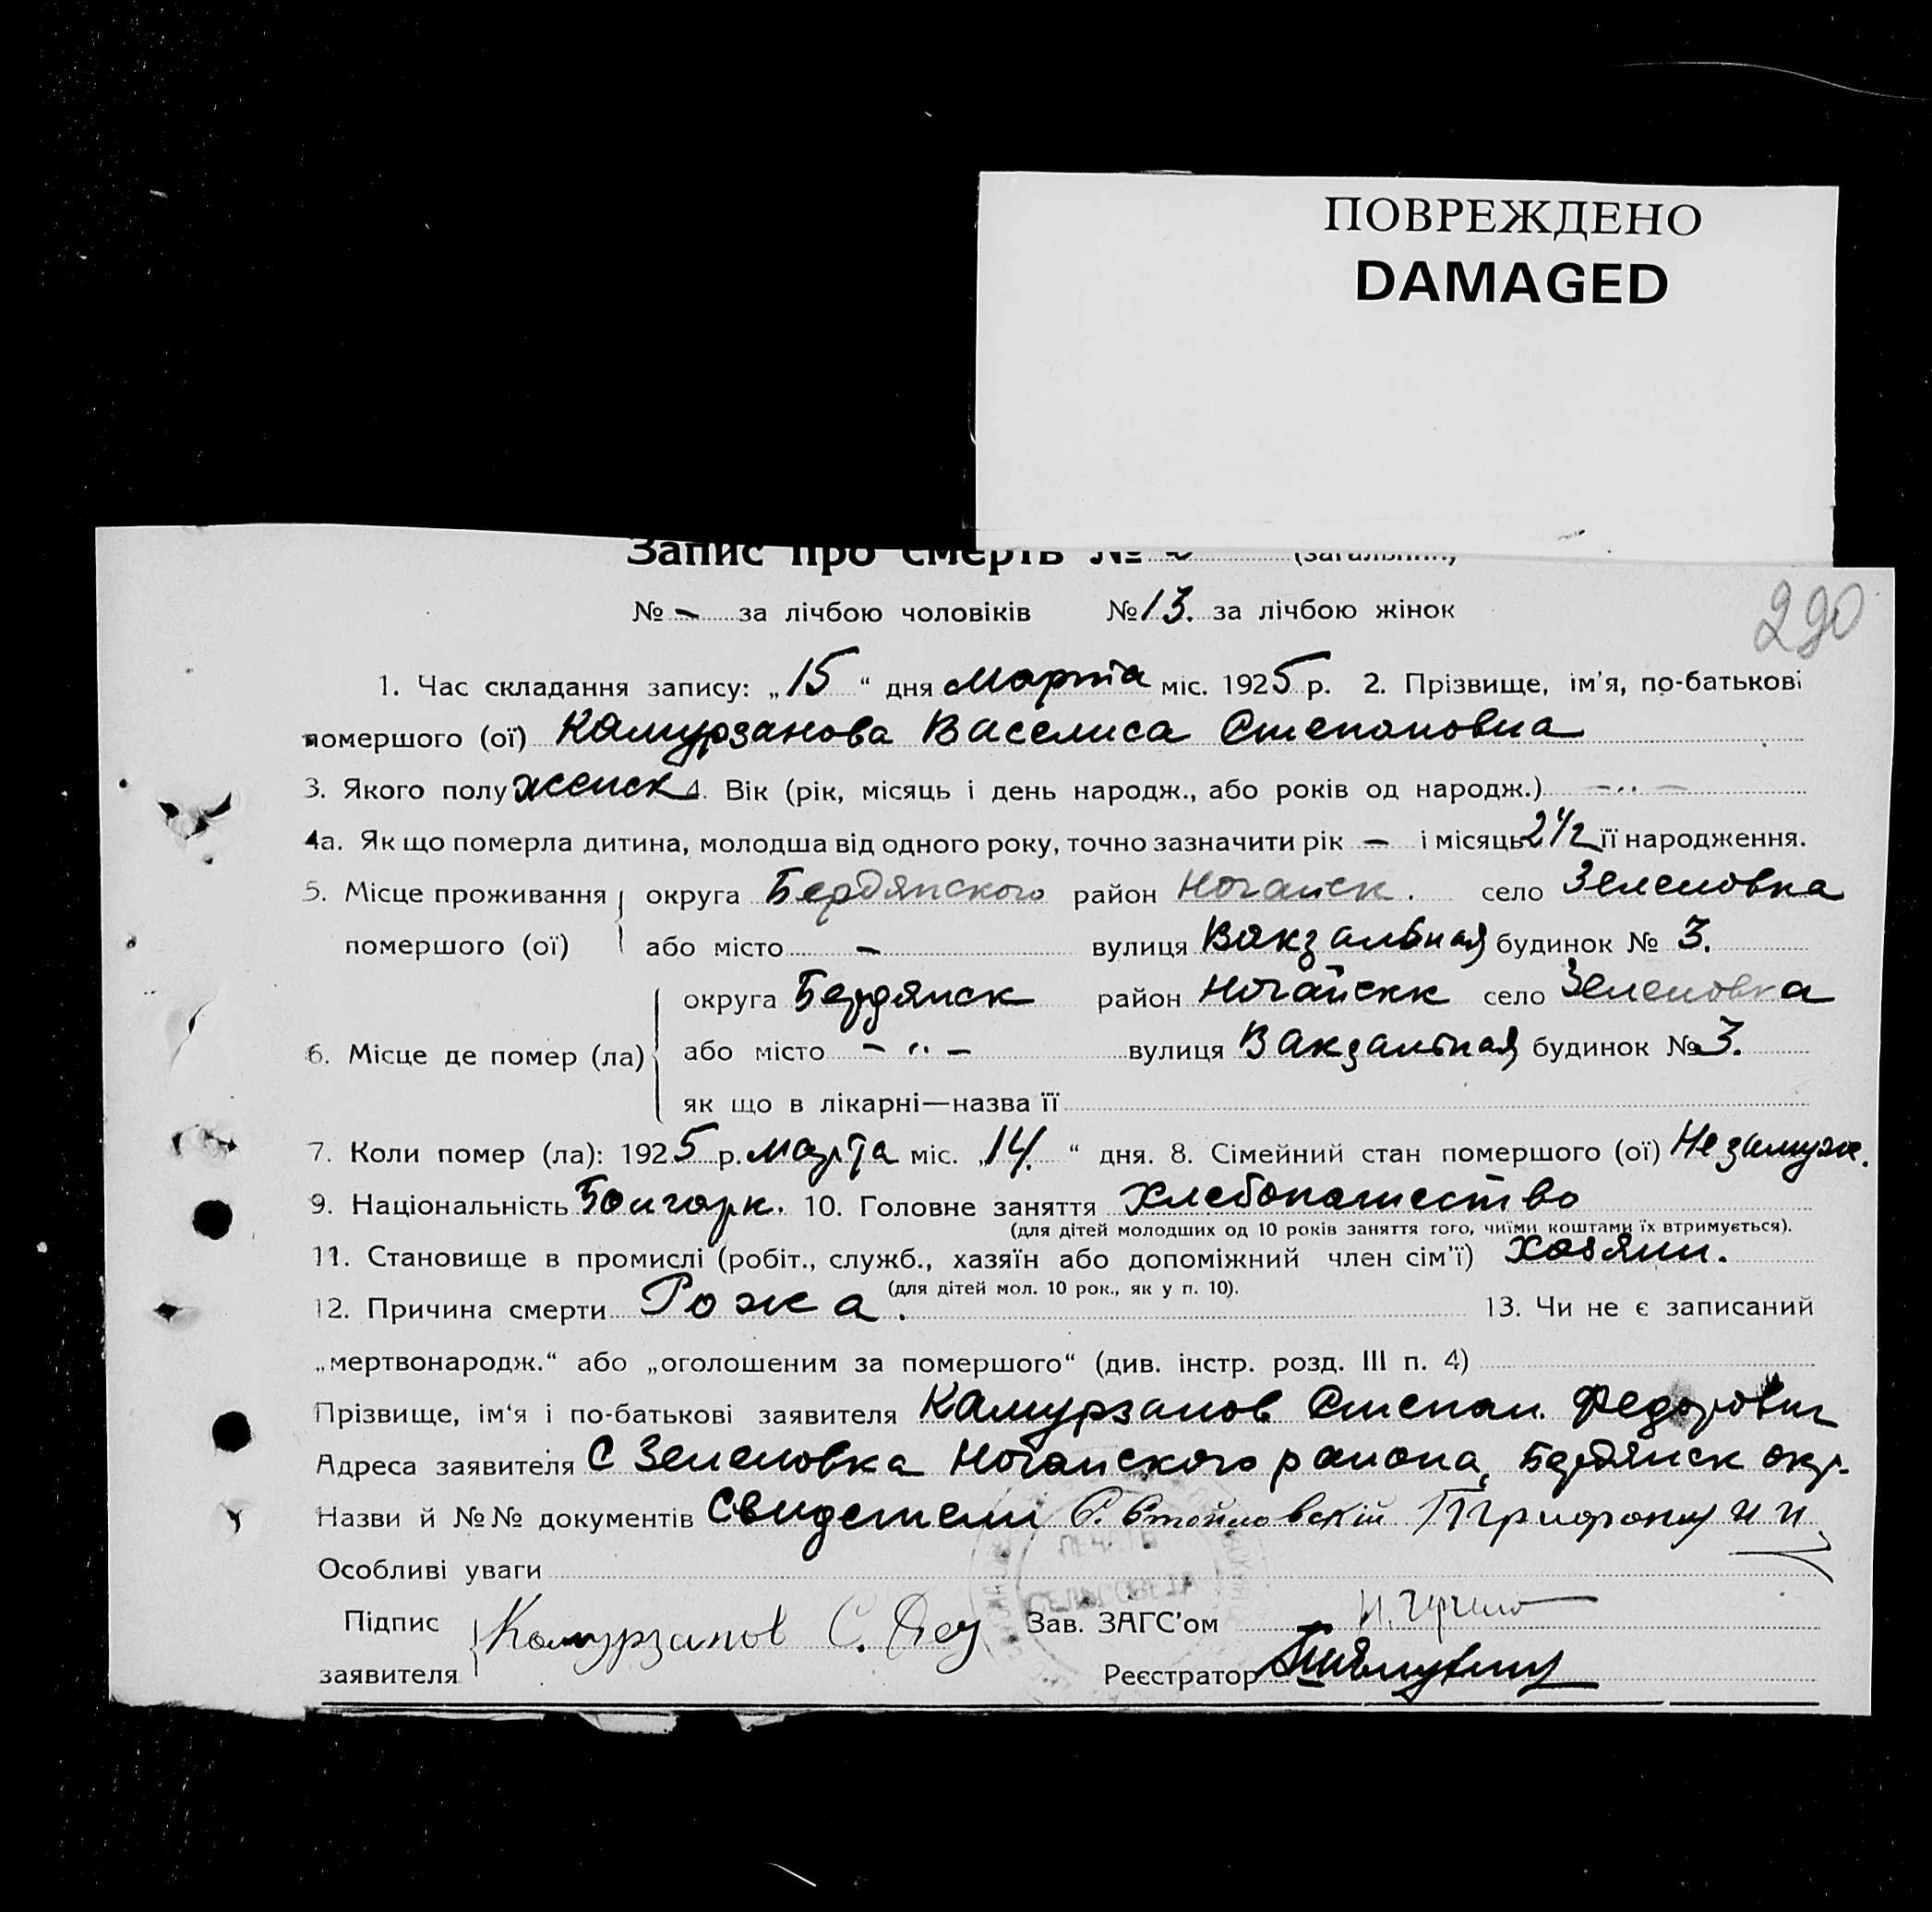 ПОВРЕЖДЕНО
DAMAGED
Запис про смерть №
№ - за лічбою чоловіків № 13. за лічбою жінок
290
1. Час складання запису: „15“ дня Марта міс. 1925 р. 2. Прізвище, ім'я, по-батькові
помершого (ої) Камурзанова Васелиса Степановна
3. Якого полу женск 4. Вік (рік, місяць і день народж., або років од народж.) -„-
4а. Як що померла дитина, молодша від одного року, точно зазначити рік - і місяць 2 1/2 її народження.
5. Місце проживання округа Бердянского район Ногайск. село Зеленовка
помершого (ої) або місто - вулиця Вакзальная будинок № 3.
округа Бердянск район Ногайскк село Зеленовка
6. Місце де помер (ла) або місто -„- вулиця Вакзальная будинок № 3.
як що в лікарні—назва її
7. Коли помер (ла): 1925 р. марта міс. „14.“ дня. 8. Сімейний стан помершого (ої) Не замуж.
9. Національність Болгарк. 10. Головне заняття Хлебопашество
(для дітей молодших од 10 років заняття того, чиїми коштами їх втримується).
11. Становище в промислі (робіт., служб., хазяїн або допоміжний член сім'ї) Хозяин.
(для дітей мол. 10 рок., як у п. 10).
12. Причина смерти Рожа. 13. Чи не є записаний
„мертвонародж.“ або „оголошеним за помершого“ (див. інстр. розд. III п. 4)
Прізвище, ім'я і по-батькові заявителя Камурзанов Степан. Федорович
Адреса заявителя С Зеленовка Ногайского района, Бердянск окр.
Назви й №№ документів Свидетели С. Стойловскій
Особливі уваги
Підпис Камурзанов С. Фед Зав. ЗАГС'ом
заявителя Реєстратор